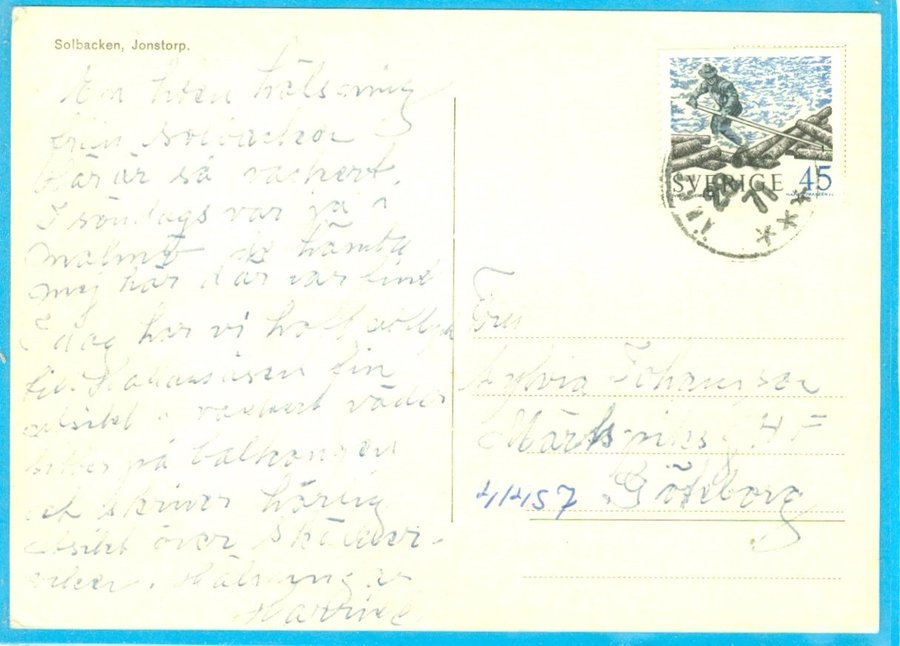 Solbacken, Jonstorp.
En liten hälsning
från Solbacken
Här är så vackert.
I söndags var ja i
Malmö de hämta
mej här där var fint
I dag har vi haft
til. fin
utsikt i vackert väder
sitter på balkongen
och skriver härlig
utsikt över Skälder-
viken. Hälsningar
SVERIGE 45
71
Fru
Sylvia Johansson
4 F
41457 Göteborg